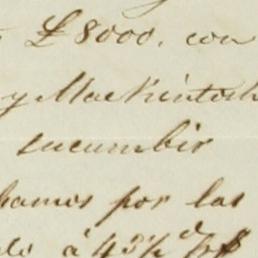 £8000. con
y Mackintosh
sucumbir
hamos por las
à 43½ d p $